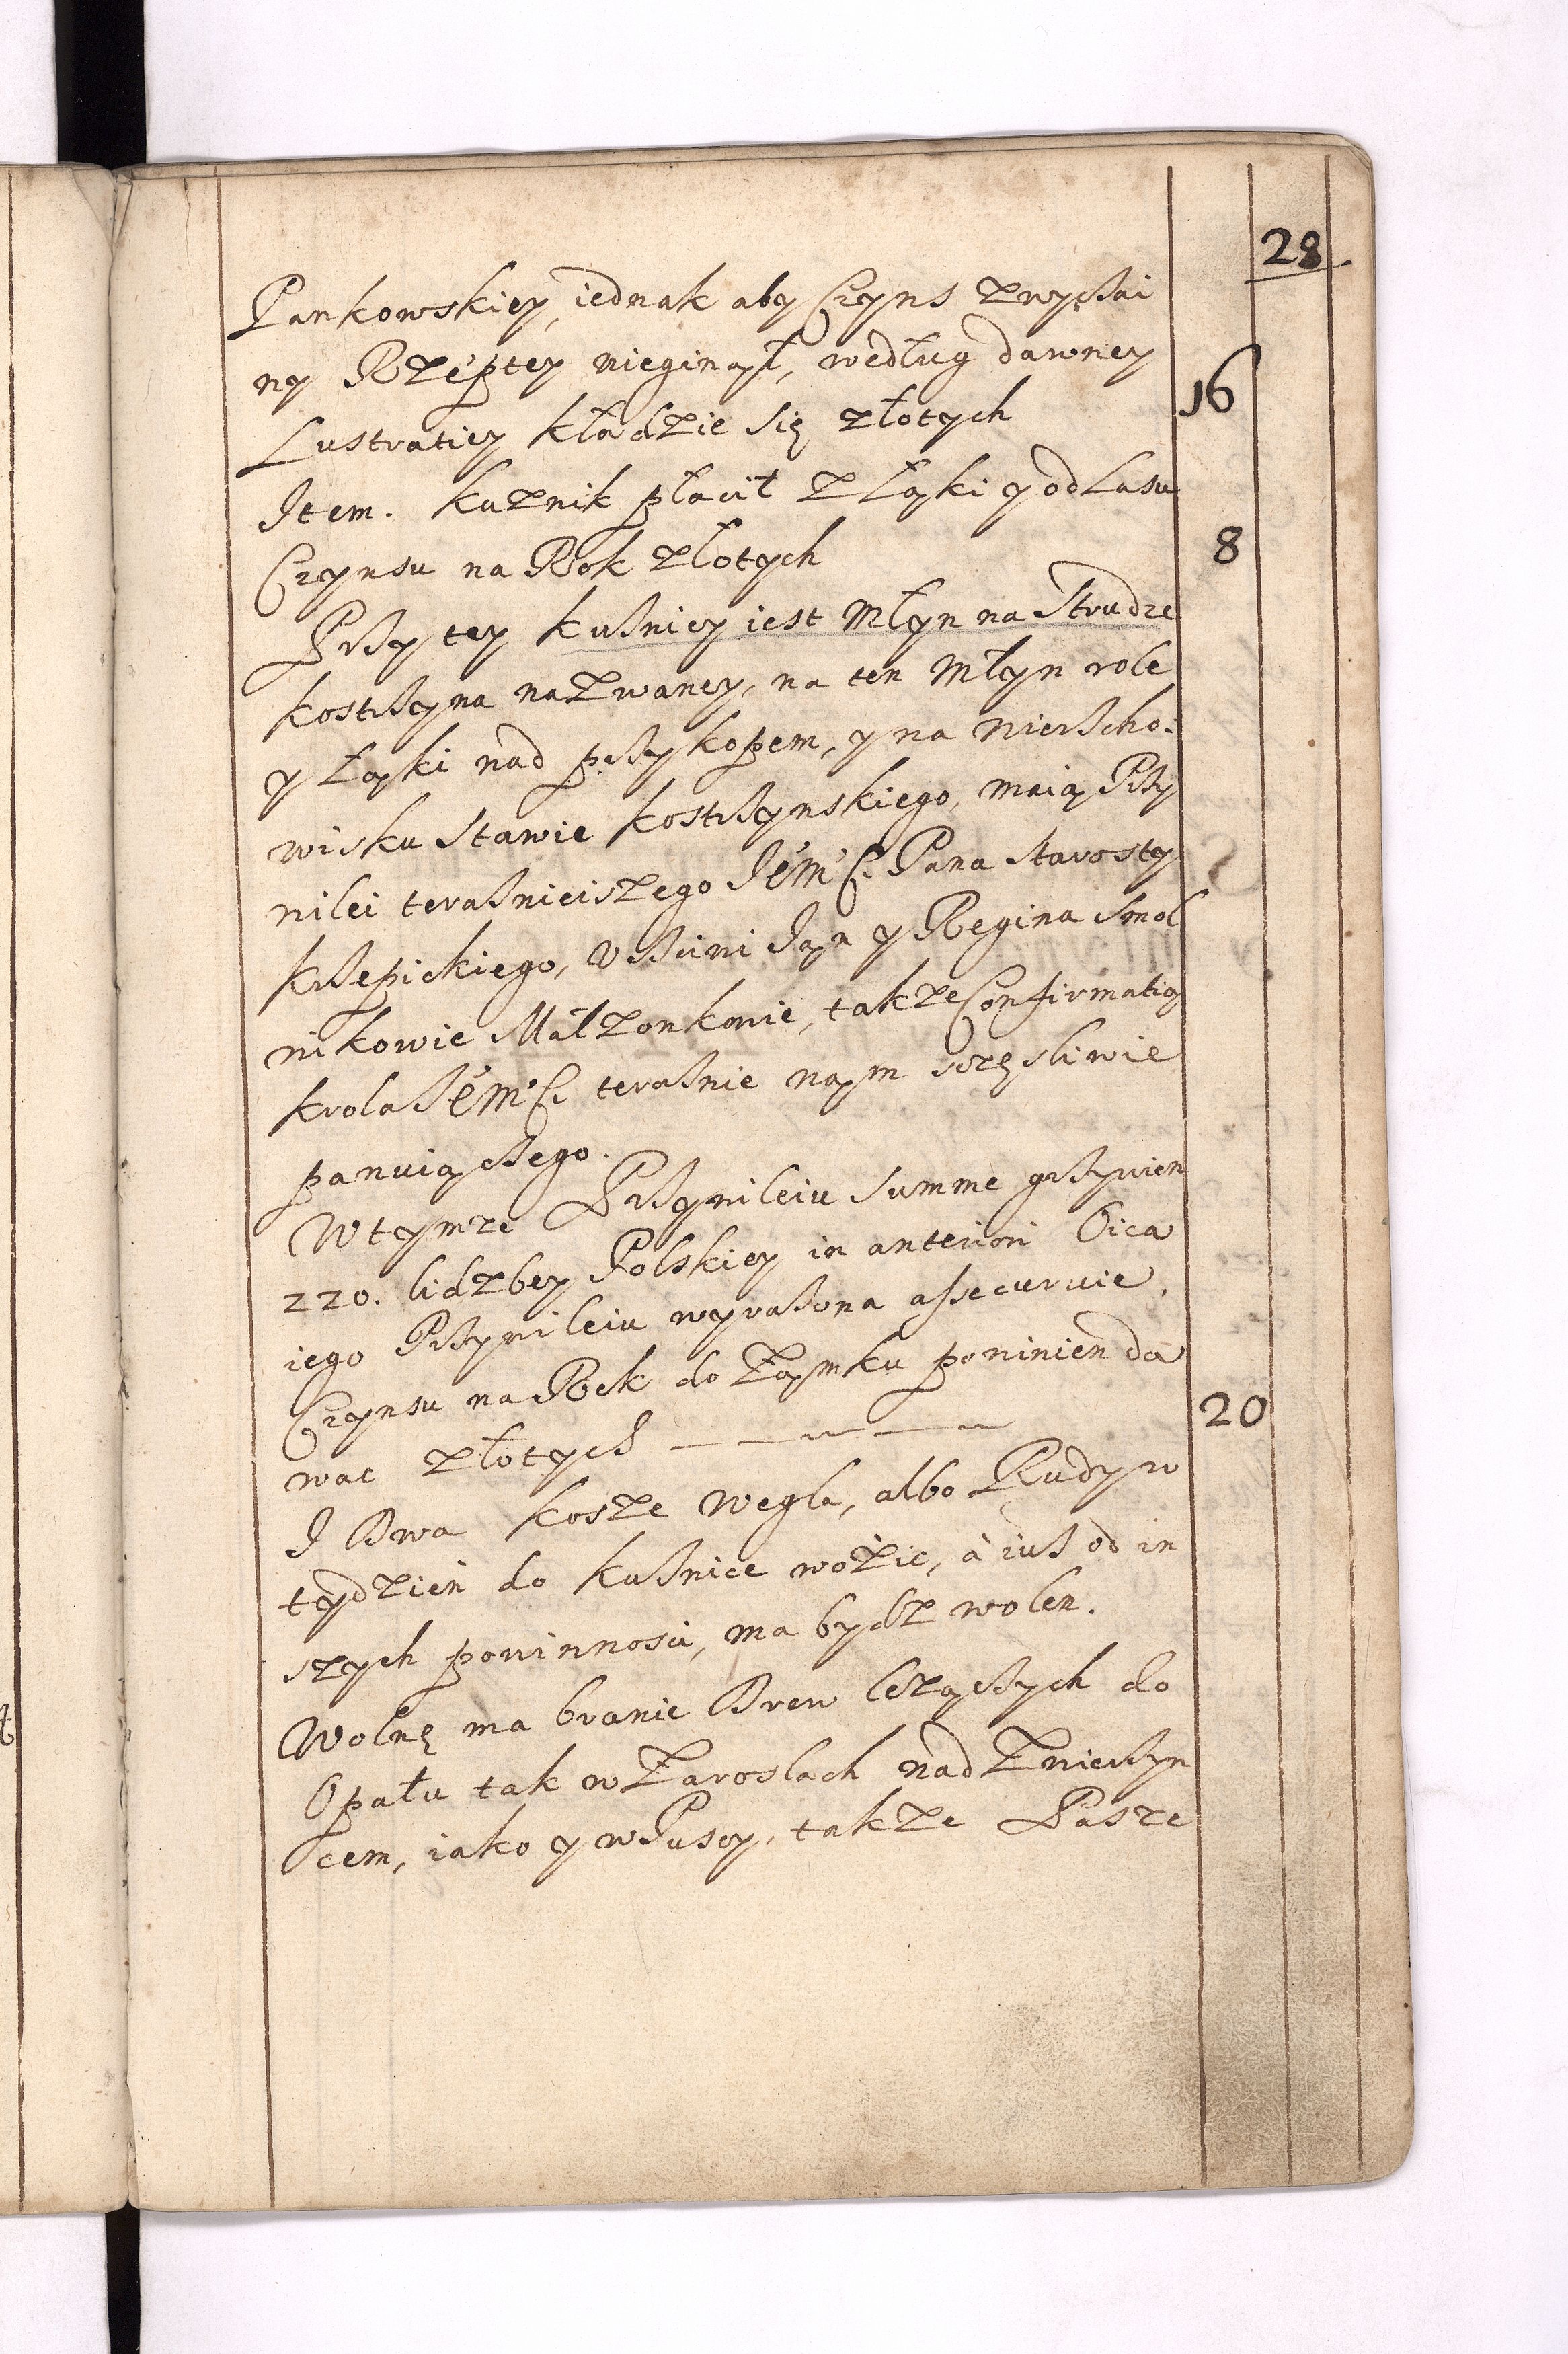 28
Pankowskiey, iednak aby Czyns zwyczai
ny Rzeptey nieginął, według dawney
Lustratiey kładzie się złotych 16
Item. Kuznik płacił z Łąki y od Lasu
Czynsu na Rok złotych 8
Przy tey Kuzniey iest Młyn na Strudze
Kostrzyna nazwaney, na ten Młyn role
y Łąki nad przykopem, y na Wierzcho:
wisku Stawie Kostrzynskiego, maią Przy
wilei terażnieiszego Jem̃C. Pana Starosty
Krzepickiego, Uczciwi Jan y Regina Smol
nikowie Małzonkowie, takze Confirmatią
Krola Jem̃C. terażnie nąm sczęsliwie
panuiączego.
W tymze Przywileiu Summe grzywien
220. lidzbey Polskiey in anteriori Oica
iego Przywileiu wyrażona assecuruie.
Czynsu na Rok do Zamku powinien da
wac złotych — — — — — 20
I Dwa Kosze Wegla, albo Rudy w
tydzień do Kuźnice woźic, á iuż od in
szych powinnosci, ma bydz wolen.
Wolnę ma branie Drew leżączych do
Opału tak w Zaroslach nad Zwierzyn
cem, iako y w Pusczy, takze Pasze